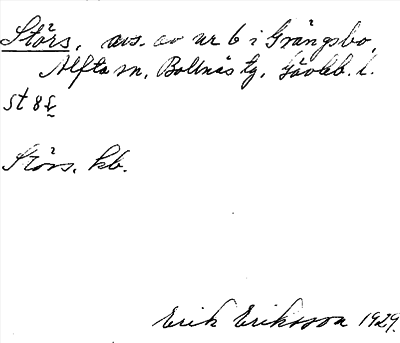 Störs, avs. av nr 6 i Grängsbo,
Alfta sn, Bollnäs tg, Gävleb. l.
Störs. kb.
Erik Eriksson 1929.